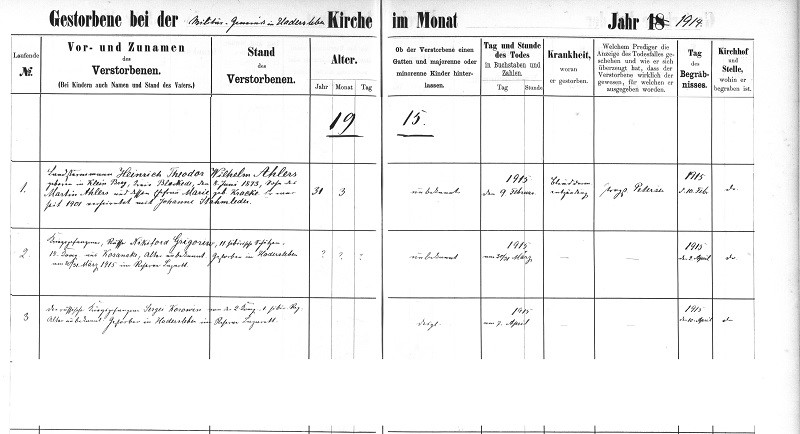 Gestorbene bei der Militär-Gemeinde in Hadersleben Kirche im Monat Jahr 18 1914.
Laufende
№.
Vor- und Zunamen
des
Verstorbenen.
(Bei Kindern auch Namen und Stand des Vaters.)
Stand
des
Verstorbenen.
Alter.
Jahr Monat Tag
Ob der Verstorbene einen
Gatten und majorenne oder
minorenne Kinder hinter-
lassen.
Tag und Stunde
des Todes
in Buchstaben und
Zahlen.
Tag Stunde
Krankheit,
woran
er gestorben.
Welchem Prediger die
Anzeige des Todesfalles ge-
schehen und wie er sich
überzeugt hat, dass der
Verstorbene wirklich der
gewesen, für welchen er
ausgegeben worden.
Tag
des
Begräb-
nisses.
Kirchhof
und
Stelle,
wohin er
begraben ist.
19 15.
1.
Landsturmmann Heinrich Theodor Wilhelm Ahlers
geboren in Klein Kreis Bleckede, den Juni 1883, Sohn des
Martin Ahlers und dessen Ehefrau Marie geb. war
seit 1901 verheiratet mit Johanne
31 3
unbekannt
1915
den 9 Februar
Blinddarm
entzündung
Petersen
1915
d. 10. Feb.
do
2.
Kriegsgefangener, Russe Nikiford Grigorin, 11 sibirische Schützen-
Alter unbekannt Gestorben in Hadersleben
am 30/31 März 1915 im Reserve Lazarett.
? ? ?
unbekannt
1915
am 30/31 März
—
—
1915
den 2. April
do
3
Der russische Kriegsgefangene Sergei von der 2 Komp. 1 sibir. Reg.
Alter unbekannt Gestorben in Hadersleben im Reserve Lazarett
desgl.
1915
am 7. April
—
—
1915
den 10. April
do